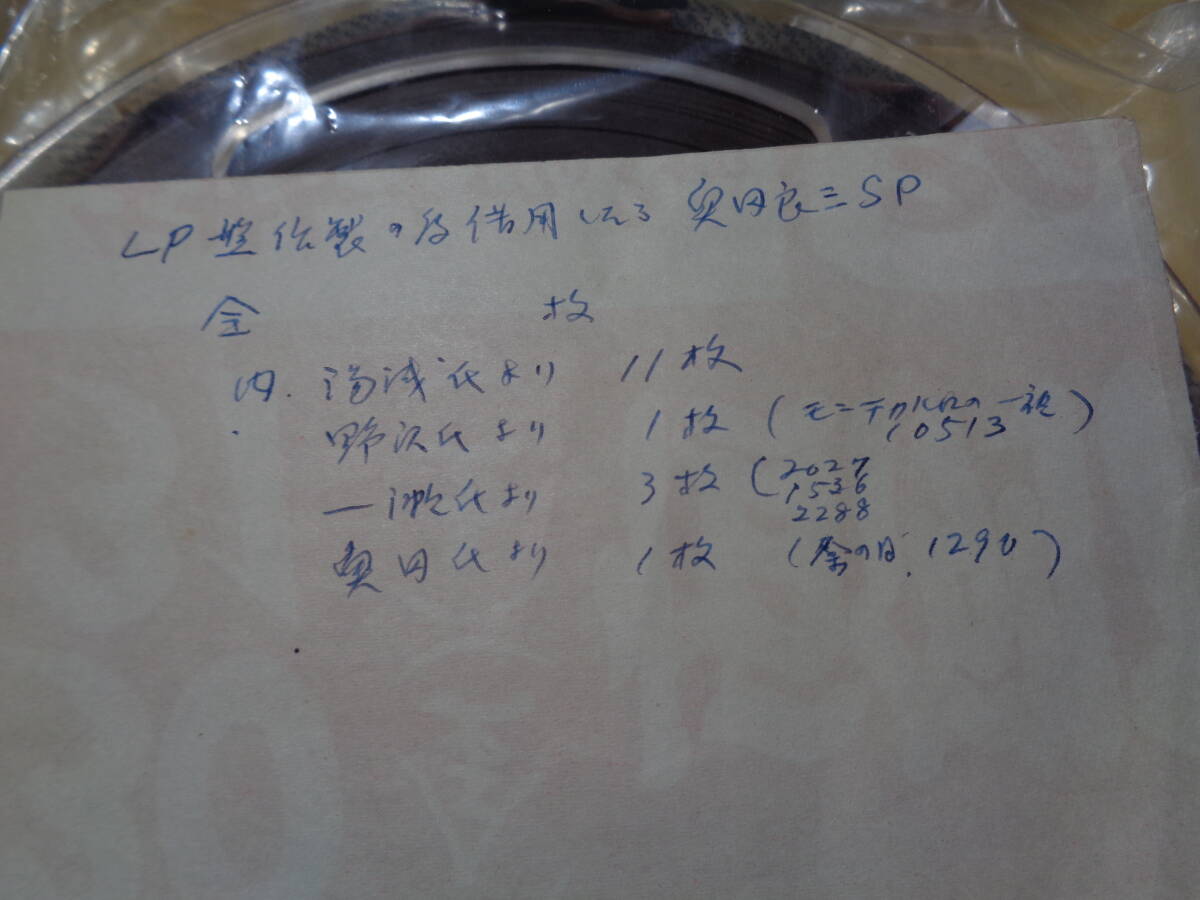 LP盤作製の為借用したる 奥田良三SP
全 枚
内. 湯浅氏より 11枚
野沢氏より 1枚 (モンテカルロの一夜 10513)
一瀬氏より 3枚 (2027
1536
2288
奥田氏より 1枚 (の日. 1290)